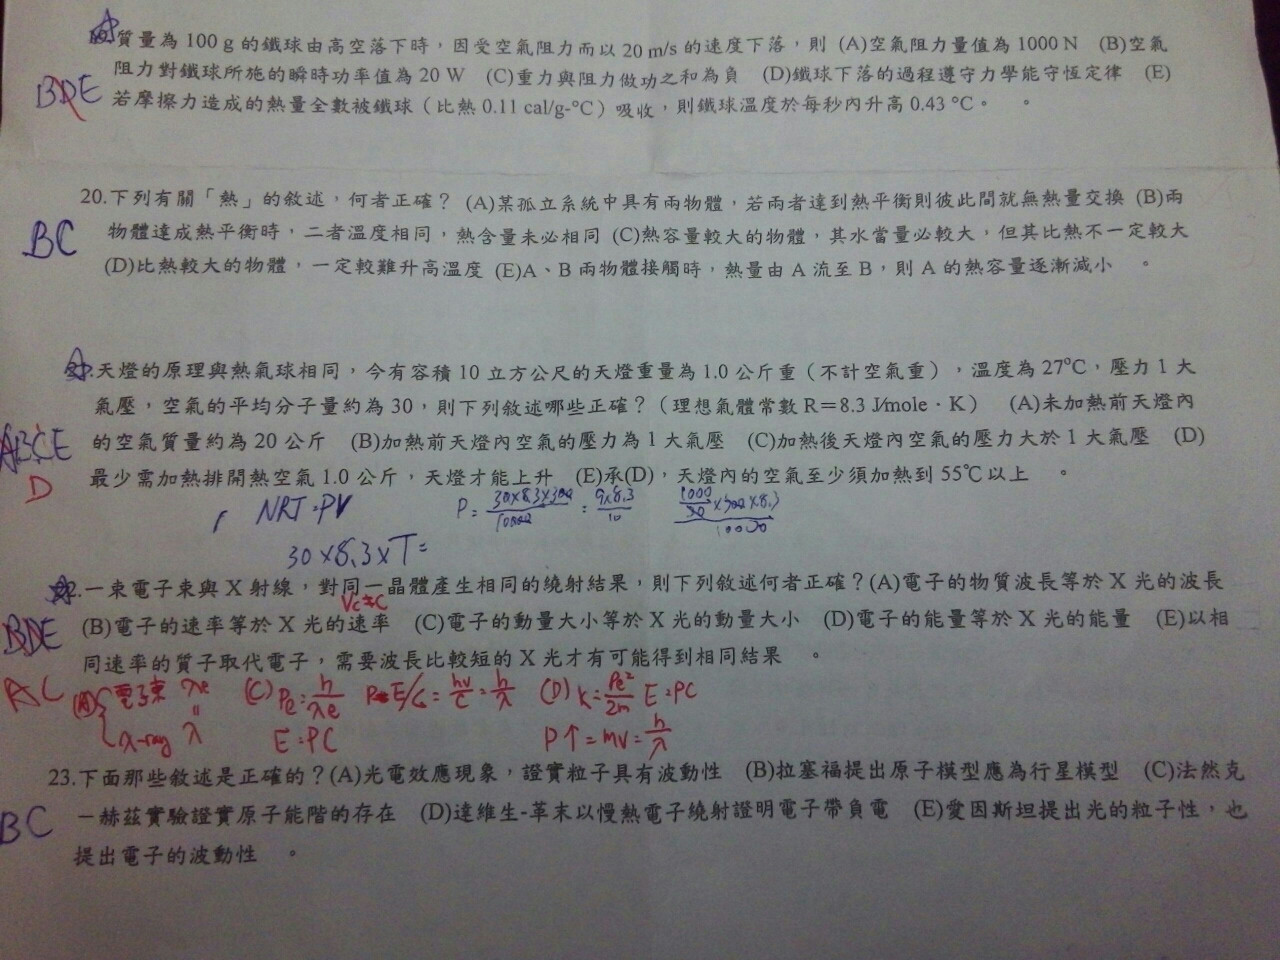 質量為 100 g 的鐵球由高空落下時，因受空氣阻力而以 20 m/s 的速度下落，則 (A)空氣阻力量值為 1000 N (B)空氣
阻力對鐵球所施的瞬時功率值為 20 W (C)重力與阻力做功之和為負 (D)鐵球下落的過程遵守力學能守恆定律 (E)
BDE
若摩擦力造成的熱量全數被鐵球（比熱 0.11 cal/g-°C）吸收，則鐵球溫度於每秒內升高 0.43 °C。 。
20.下列有關「熱」的敘述，何者正確？ (A)某孤立系統中具有兩物體，若兩者達到熱平衡則彼此間就無熱量交換 (B)兩
BC
物體達成熱平衡時，二者溫度相同，熱含量未必相同 (C)熱容量較大的物體，其水當量必較大，但其比熱不一定較大
(D)比熱較大的物體，一定較難升高溫度 (E)A、B 兩物體接觸時，熱量由 A 流至 B，則 A 的熱容量逐漸減小 。
天燈的原理與熱氣球相同，今有容積 10 立方公尺的天燈重量為 1.0 公斤重（不計空氣重），溫度為 27°C，壓力 1 大
氣壓，空氣的平均分子量約為 30，則下列敘述哪些正確？（理想氣體常數 R＝8.3 J/mole．K） (A)未加熱前天燈內
ABCE
的空氣質量約為 20 公斤 (B)加熱前天燈內空氣的壓力為 1 大氣壓 (C)加熱後天燈內空氣的壓力大於 1 大氣壓 (D)
D
最少需加熱排開熱空氣 1.0 公斤，天燈才能上升 (E)承(D)，天燈內的空氣至少須加熱到 55℃以上 。
NRT=PV P= 30×8.3×300 / 10000 = 9×8.3 / 10 1000/30 ×300×8.3 / 10000
30×8.3×T=
一束電子束與 X 射線，對同一晶體產生相同的繞射結果，則下列敘述何者正確？(A)電子的物質波長等於 X 光的波長
BDE
(B)電子的速率等於 X 光的速率 (C)電子的動量大小等於 X 光的動量大小 (D)電子的能量等於 X 光的能量 (E)以相
同速率的質子取代電子，需要波長比較短的 X 光才有可能得到相同結果 。
AC
(A) 電子束 λe (C) Pe=h/λe P=E/c=hν/c=h/λ (D) K=Pe²/2m E=PC
x-ray λ E=PC P↑=mv=h/λ
23.下面那些敘述是正確的？(A)光電效應現象，證實粒子具有波動性 (B)拉塞福提出原子模型應為行星模型 (C)法然克
BC
－赫茲實驗證實原子能階的存在 (D)達維生-革末以慢熱電子繞射證明電子帶負電 (E)愛因斯坦提出光的粒子性，也
提出電子的波動性 。